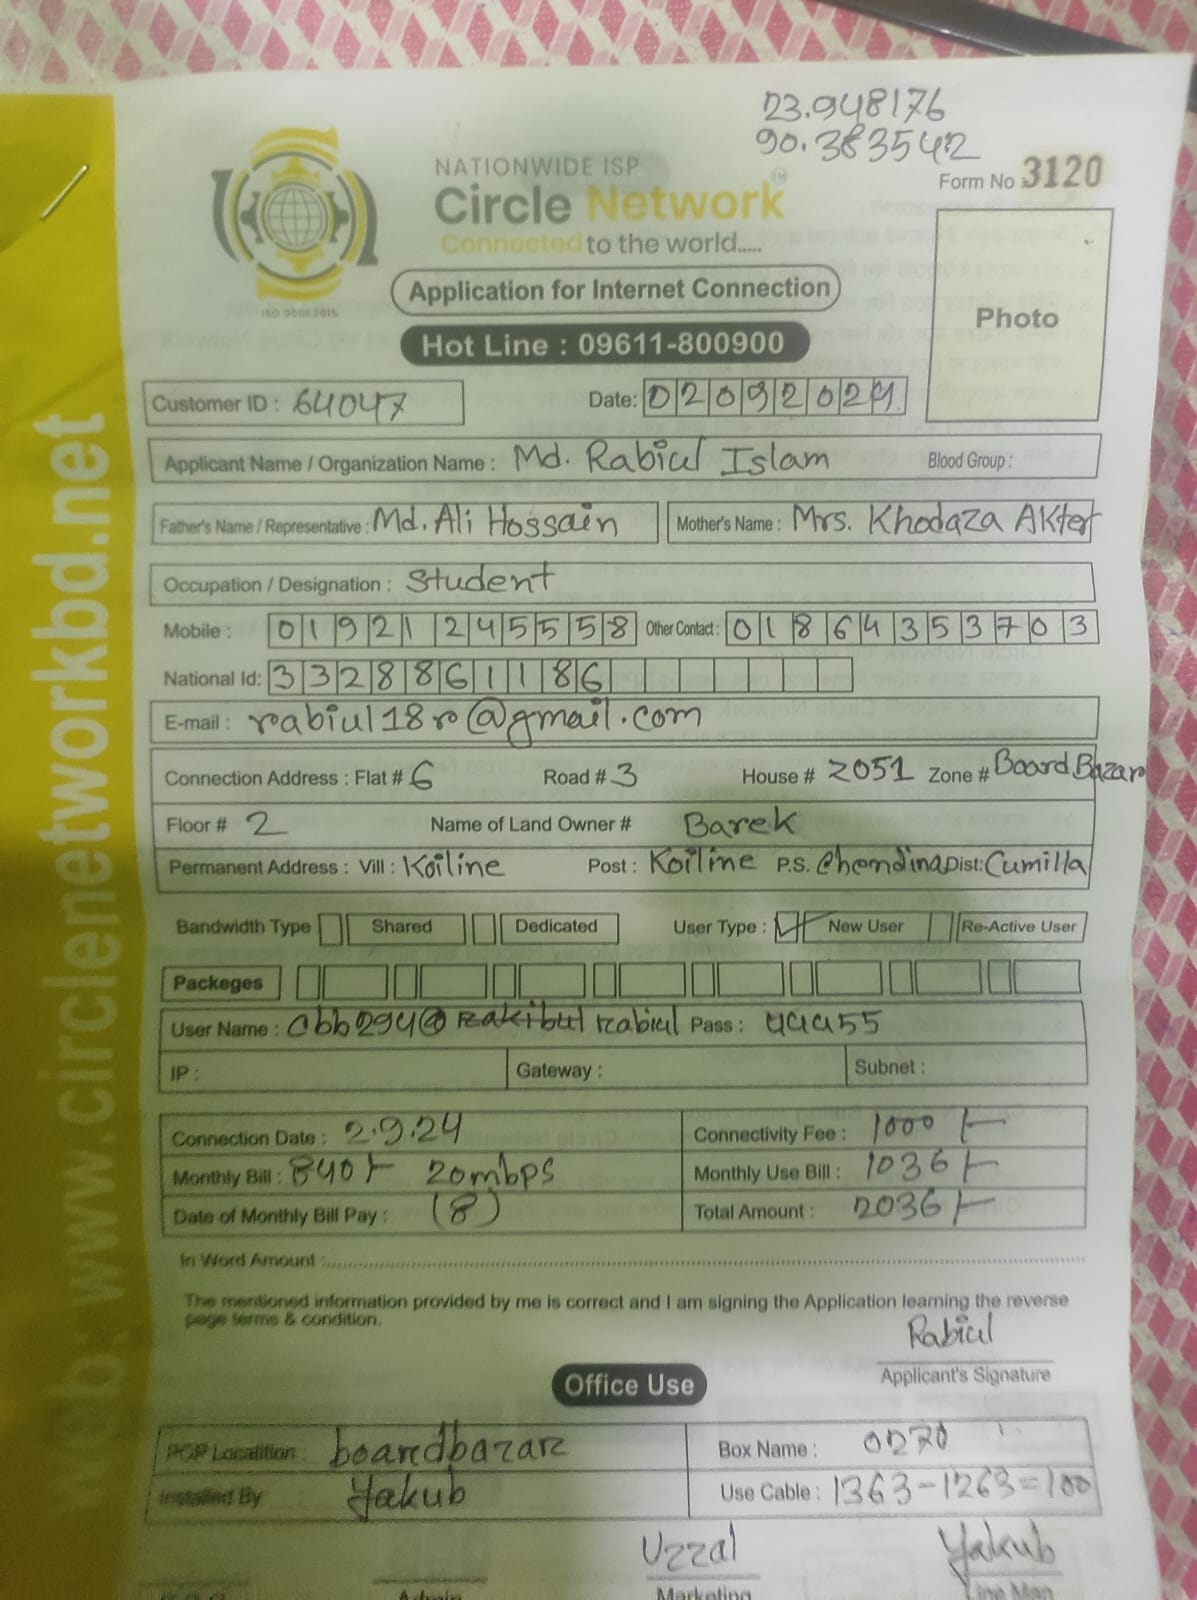 23.948176
90.383542
NATIONWIDE ISP
Circle Network TM
Connected to the world.....
ISO 9001:2015
Form No 3120
Application for Internet Connection
Photo
Hot Line : 09611-800900
www.circlenetworkbd.net
Customer ID : 64047 Date: 02092024
Applicant Name / Organization Name : Md. Rabiul Islam Blood Group :
Father's Name / Representative : Md. Ali Hossain Mother's Name : Mrs. Khodaza Akter
Occupation / Designation : Student
Mobile : 01921245558 Other Contact : 01864353703
National Id: 3328861186
E-mail : rabiul18r@gmail.com
Connection Address : Flat # 6 Road # 3 House # 2051 Zone # Board Bazar
Floor # 2 Name of Land Owner # Barek
Permanent Address : Vill : Koiline Post : Koiline P.S. Chandina Dist: Cumilla
Bandwidth Type Shared Dedicated User Type : New User Re-Active User
Packeges
User Name : cbb294@ rakibul rabiul Pass : 44455
IP : Gateway : Subnet :
Connection Date : 2.9.24 Connectivity Fee : 1000/-
Monthly Bill : 840/- 20mbps Monthly Use Bill : 1036/-
Date of Monthly Bill Pay : (8) Total Amount : 2036/-
In Word Amount :
The mentioned information provided by me is correct and I am signing the Application learning the reverse
page terms & condition.
Rabiul
Applicant's Signature
Office Use
POP Localition : boardbazar Box Name : 0270
Installed By Yakub Use Cable : 1363-1263=100
Uzzal Yakub
Admin Marketing Line Man